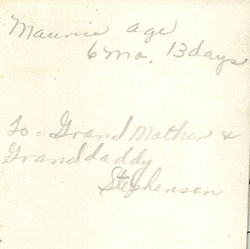 Maurice age
6 mo. 13 days
To = Grand Mother &
Granddaddy
Stephenson